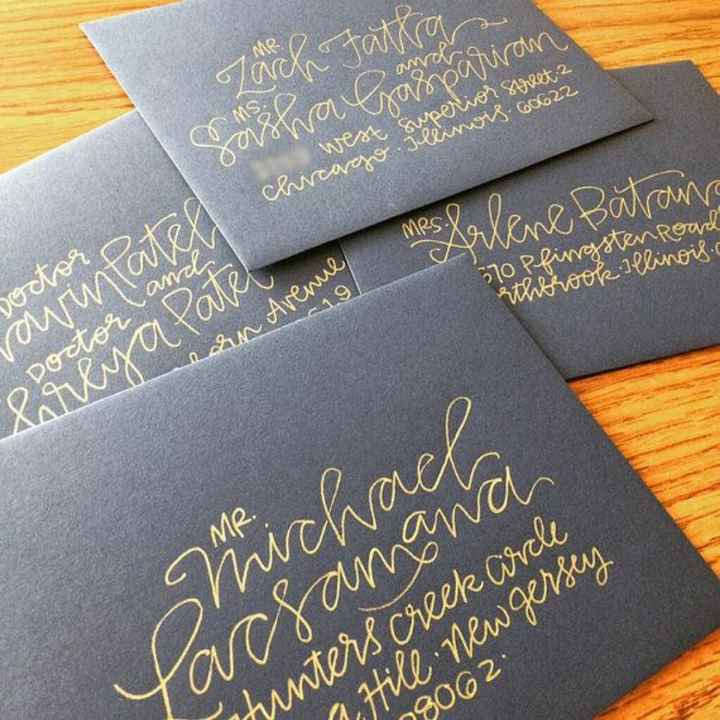 MR.
Zach Fatla
and
MS.
Sasha Gasparian
West Superior Street · 2
Chicago · Illinois · 60622
Doctor
Patel
and
Doctor
Shreya Patel
Avenue
MRS.
Arlene
Pfingsten Road
Illinois
MR.
Michael
Lacsamana
Hunters Creek Circle
Hill · New Jersey
08062 ·